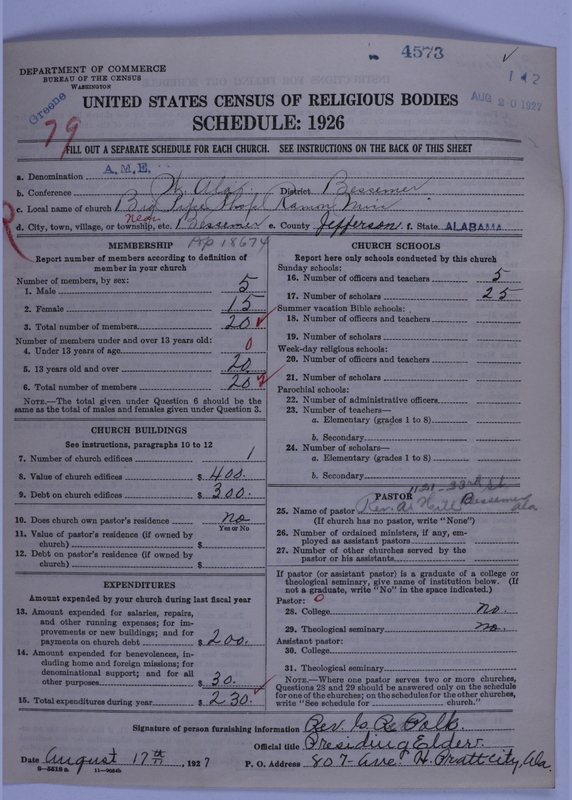 4573
DEPARTMENT OF COMMERCE
BUREAU OF THE CENSUS
WASHINGTON
142
AUG 20 1927
Greene
79
UNITED STATES CENSUS OF RELIGIOUS BODIES
SCHEDULE: 1926
FILL OUT A SEPARATE SCHEDULE FOR EACH CHURCH. SEE INSTRUCTIONS ON THE BACK OF THIS SHEET
a. Denomination A.M.E.
b. Conference N. Ala. District Bessemer
c. Local name of church Big Pipe Shop
d. City, town, village, or township, etc. near Bessemer e. County Jefferson f. State ALABAMA
MEMBERSHIP
Report number of members according to definition of
member in your church
Number of members, by sex:
1. Male 5
2. Female 15
3. Total number of members 20
Number of members under and over 13 years old:
4. Under 13 years of age 0
5. 13 years old and over 20
6. Total number of members 20
NOTE.—The total given under Question 6 should be the
same as the total of males and females given under Question 3.
CHURCH BUILDINGS
See instructions, paragraphs 10 to 12
7. Number of church edifices 1
8. Value of church edifices $ 400.
9. Debt on church edifices $ 300.
10. Does church own pastor's residence no
Yes or No
11. Value of pastor's residence (if owned by
church) $
12. Debt on pastor's residence (if owned by
church) $
EXPENDITURES
Amount expended by your church during last fiscal year
13. Amount expended for salaries, repairs,
and other running expenses; for im-
provements or new buildings; and for
payments on church debt $ 200.
14. Amount expended for benevolences, in-
cluding home and foreign missions; for
denominational support; and for all
other purposes $ 30.
15. Total expenditures during year $ 230.
CHURCH SCHOOLS
Report here only schools conducted by this church
Sunday schools:
16. Number of officers and teachers 5
17. Number of scholars 25
Summer vacation Bible schools:
18. Number of officers and teachers
19. Number of scholars
Week-day religious schools:
20. Number of officers and teachers
21. Number of scholars
Parochial schools:
22. Number of administrative officers
23. Number of teachers—
a. Elementary (grades 1 to 8)
b. Secondary
24. Number of scholars—
a. Elementary (grades 1 to 8)
b. Secondary
PASTOR
25. Name of pastor Rev. Hill Bessemer Ala
(If church has no pastor, write "None")
26. Number of ordained ministers, if any, em-
ployed as assistant pastors
27. Number of other churches served by the
pastor or his assistants
If pastor (or assistant pastor) is a graduate of a college or
theological seminary, give name of institution below. (If
not a graduate, write "No" in the space indicated.)
Pastor: 0
28. College no.
29. Theological seminary no.
Assistant pastor:
30. College
31. Theological seminary
NOTE.—Where one pastor serves two or more churches,
Questions 28 and 29 should be answered only on the schedule
for one of the churches; on the schedules for the other churches,
write "See schedule for church."
Signature of person furnishing information Rev. Polk
Official title Presiding Elder
Date August 17th, 1927 P. O. Address 807- Ave. H. Pratt City, Ala.
8—5518a 11—9084b